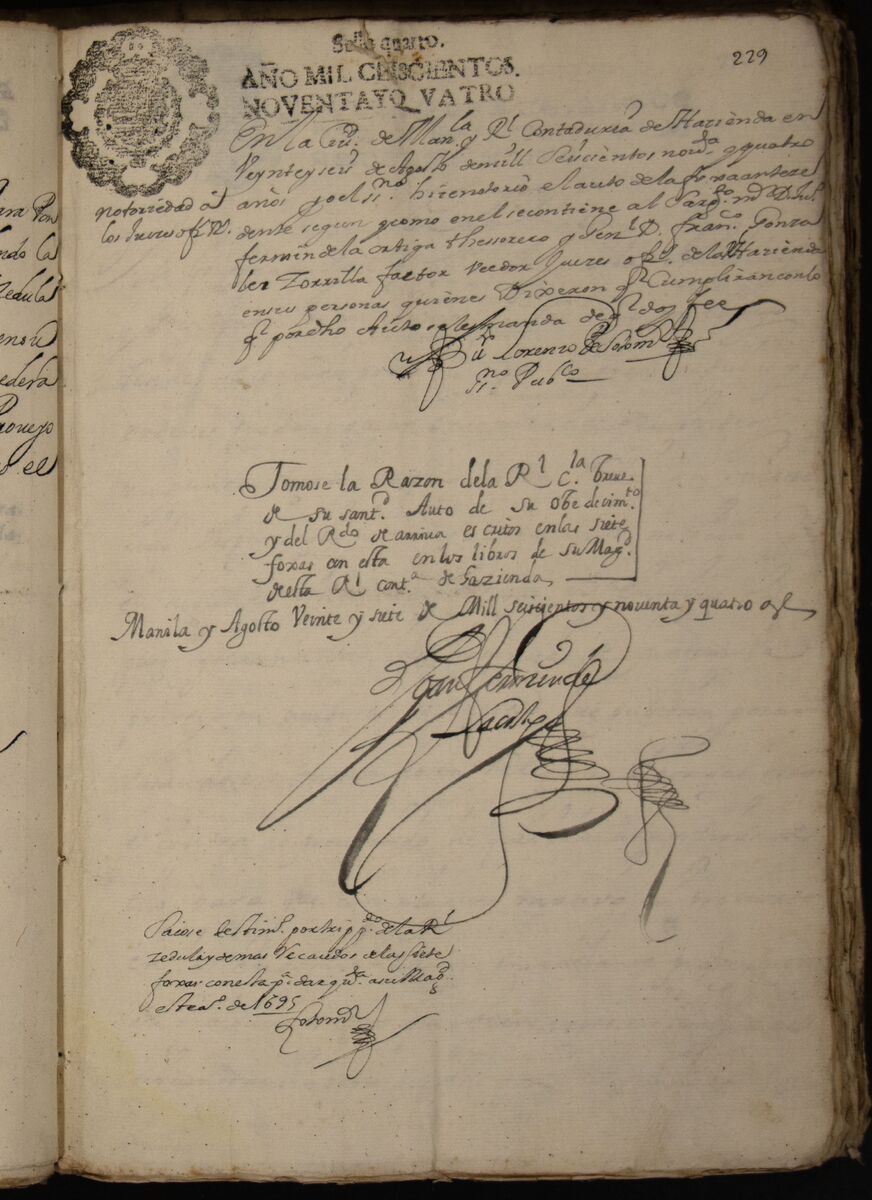 229
Sello quarto.
AÑO MIL CEISCIENTOS.
NOVENTA Y Q VATRO
En la Ciu.d de Man.la y R.l Contaduria de Hazienda en
Veynte y seis de Agosto de mill Seiscientos nov.ta y quatro
años yo el ss.no hize notorio el auto de la foxa antece
dente segun y como en el se contiene al Sarg.to m.r D. Ju.o
fermin de la ortiga thessorero y Gen.l D. fran.co Gonza
lez Zorrilla factor Veedor Juezes of.s de la R.l Hazienda
en sus personas quienes Dixeron q.e Cumpliran con lo
q.e por dho Auto se les manda de q.e doy fee
notoriedad á
los Jueces ofi.s R.s
Lorenzo
ss.no Pub.co
Tomose la Razon de la R.l C.la breve
de su sant.d Auto de su obedecim.to
y del R.do de arriva escritos en las siete
foxas con esta en los libros de su Mag.d
desta R.l cont.a de hazienda
Manila y Agosto Veinte y siete de Mill seiscientos y noventa y quatro a.s
Sacose testim.o por trip.do de la R.l
zedula y demas Recaudos de las siete
foxas con esta p.a dar q.ta a su Mag.d
este a.o de 1695